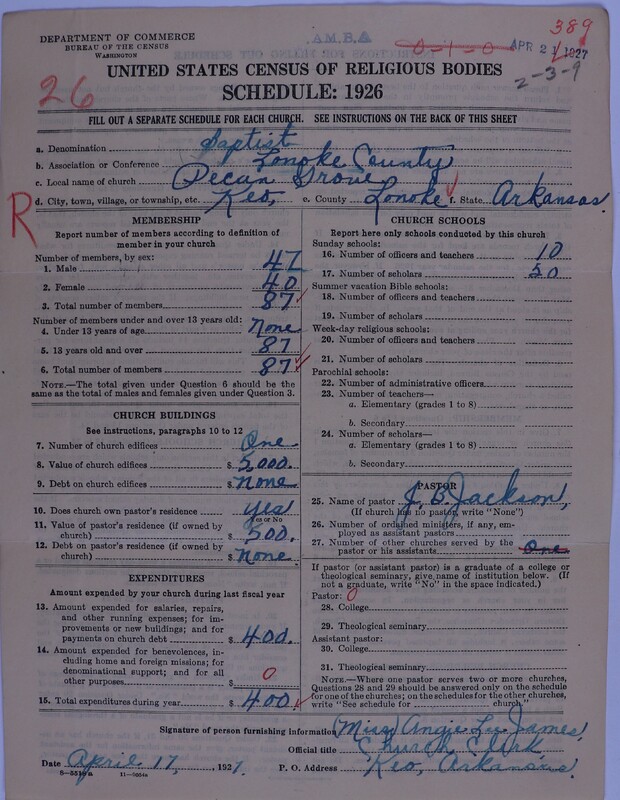 DEPARTMENT OF COMMERCE
BUREAU OF THE CENSUS
WASHINGTON
A.B.M.A.
0-1-0
APR 21 1927
389
2-3-9
26
UNITED STATES CENSUS OF RELIGIOUS BODIES
SCHEDULE: 1926
FILL OUT A SEPARATE SCHEDULE FOR EACH CHURCH. SEE INSTRUCTIONS ON THE BACK OF THIS SHEET
a. Denomination Baptist
b. Association or Conference Lonoke County
c. Local name of church Pecan Grove
d. City, town, village, or township, etc. Keo, e. County Lonoke f. State Arkansas.
R
MEMBERSHIP
Report number of members according to definition of
member in your church
Number of members, by sex:
1. Male 47
2. Female 40
3. Total number of members 87
Number of members under and over 13 years old:
4. Under 13 years of age None
5. 13 years old and over 87
6. Total number of members 87
NOTE.—The total given under Question 6 should be the
same as the total of males and females given under Question 3.
CHURCH BUILDINGS
See instructions, paragraphs 10 to 12
7. Number of church edifices One
8. Value of church edifices $5,000.
9. Debt on church edifices $None
10. Does church own pastor's residence yes
Yes or No
11. Value of pastor's residence (if owned by
church) $500.
12. Debt on pastor's residence (if owned by
church) $None
EXPENDITURES
Amount expended by your church during last fiscal year
13. Amount expended for salaries, repairs,
and other running expenses; for im-
provements or new buildings; and for
payments on church debt $400.
14. Amount expended for benevolences, in-
cluding home and foreign missions; for
denominational support; and for all
other purposes $0
15. Total expenditures during year $400
CHURCH SCHOOLS
Report here only schools conducted by this church
Sunday schools:
16. Number of officers and teachers 10
17. Number of scholars 50
Summer vacation Bible schools:
18. Number of officers and teachers
19. Number of scholars
Week-day religious schools:
20. Number of officers and teachers
21. Number of scholars
Parochial schools:
22. Number of administrative officers
23. Number of teachers—
a. Elementary (grades 1 to 8)
b. Secondary
24. Number of scholars—
a. Elementary (grades 1 to 8)
b. Secondary
PASTOR
25. Name of pastor J. B. Jackson,
(If church has no pastor, write "None")
26. Number of ordained ministers, if any, em-
ployed as assistant pastors
27. Number of other churches served by the
pastor or his assistants One
If pastor (or assistant pastor) is a graduate of a college or
theological seminary, give name of institution below. (If
not a graduate, write "No" in the space indicated.)
Pastor: 0
28. College
29. Theological seminary
Assistant pastor:
30. College
31. Theological seminary
NOTE.—Where one pastor serves two or more churches,
Questions 28 and 29 should be answered only on the schedule
for one of the churches; on the schedules for the other churches,
write "See schedule for church."
Signature of person furnishing information (Miss) Angie Lu James,
Official title Church Clerk
Date April 17, 1927. P. O. Address Keo, Arkansas.